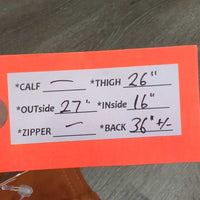 *CALF — *THIGH 26"
*OUTside 27" *INside 16"
*ZIPPER — *BACK 36" +/-